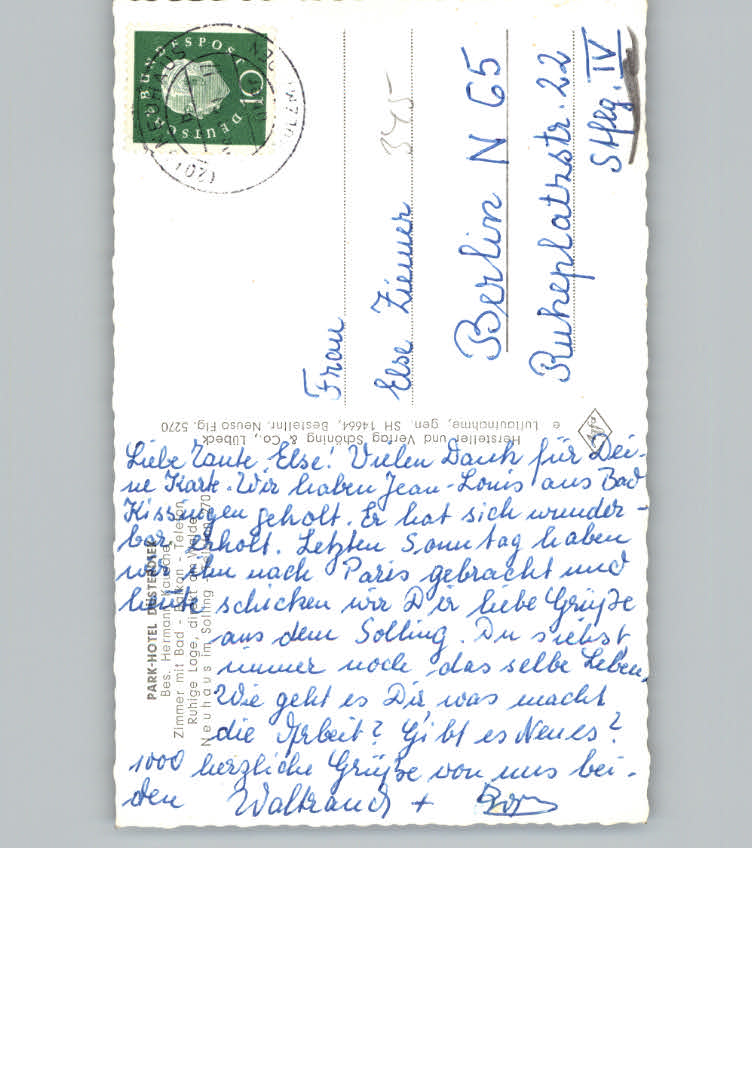 Liebe Tante Else! Vielen Dank für Dei-
ne Karte. Wir haben Jean-Louis aus Bad
Kissingen geholt. Er hat sich wunder-
bar erholt. Letzten Sonntag haben
wir ihn nach Paris gebracht und
heute schicken wir Dir liebe Grüße
aus dem Solling. Du siehst
immer noch das selbe Leben.
Wie geht es Dir was macht
die Arbeit? Gibt es Neues?
1000 herzliche Grüße von uns bei-
den Waltraud +
PARK-HOTEL DÜSTERDIEK
Bes. Hermann
Zimmer mit Bad - Balkon - Telefon
Ruhige Lage, direkt am Walde
Neuhaus im Solling
Hersteller und Verlag Schöning & Co., Lübeck
e Luftaufnahme, gen. SH 14664, Bestellnr. Neuso Flg. 5270
Agfa
DEUTSCHE BUNDESPOST
10
(20) NEUHAUS
345
Frau
Else Ziemer
Berlin N 65
Ruheplatzstr. 22
Stflg. IV